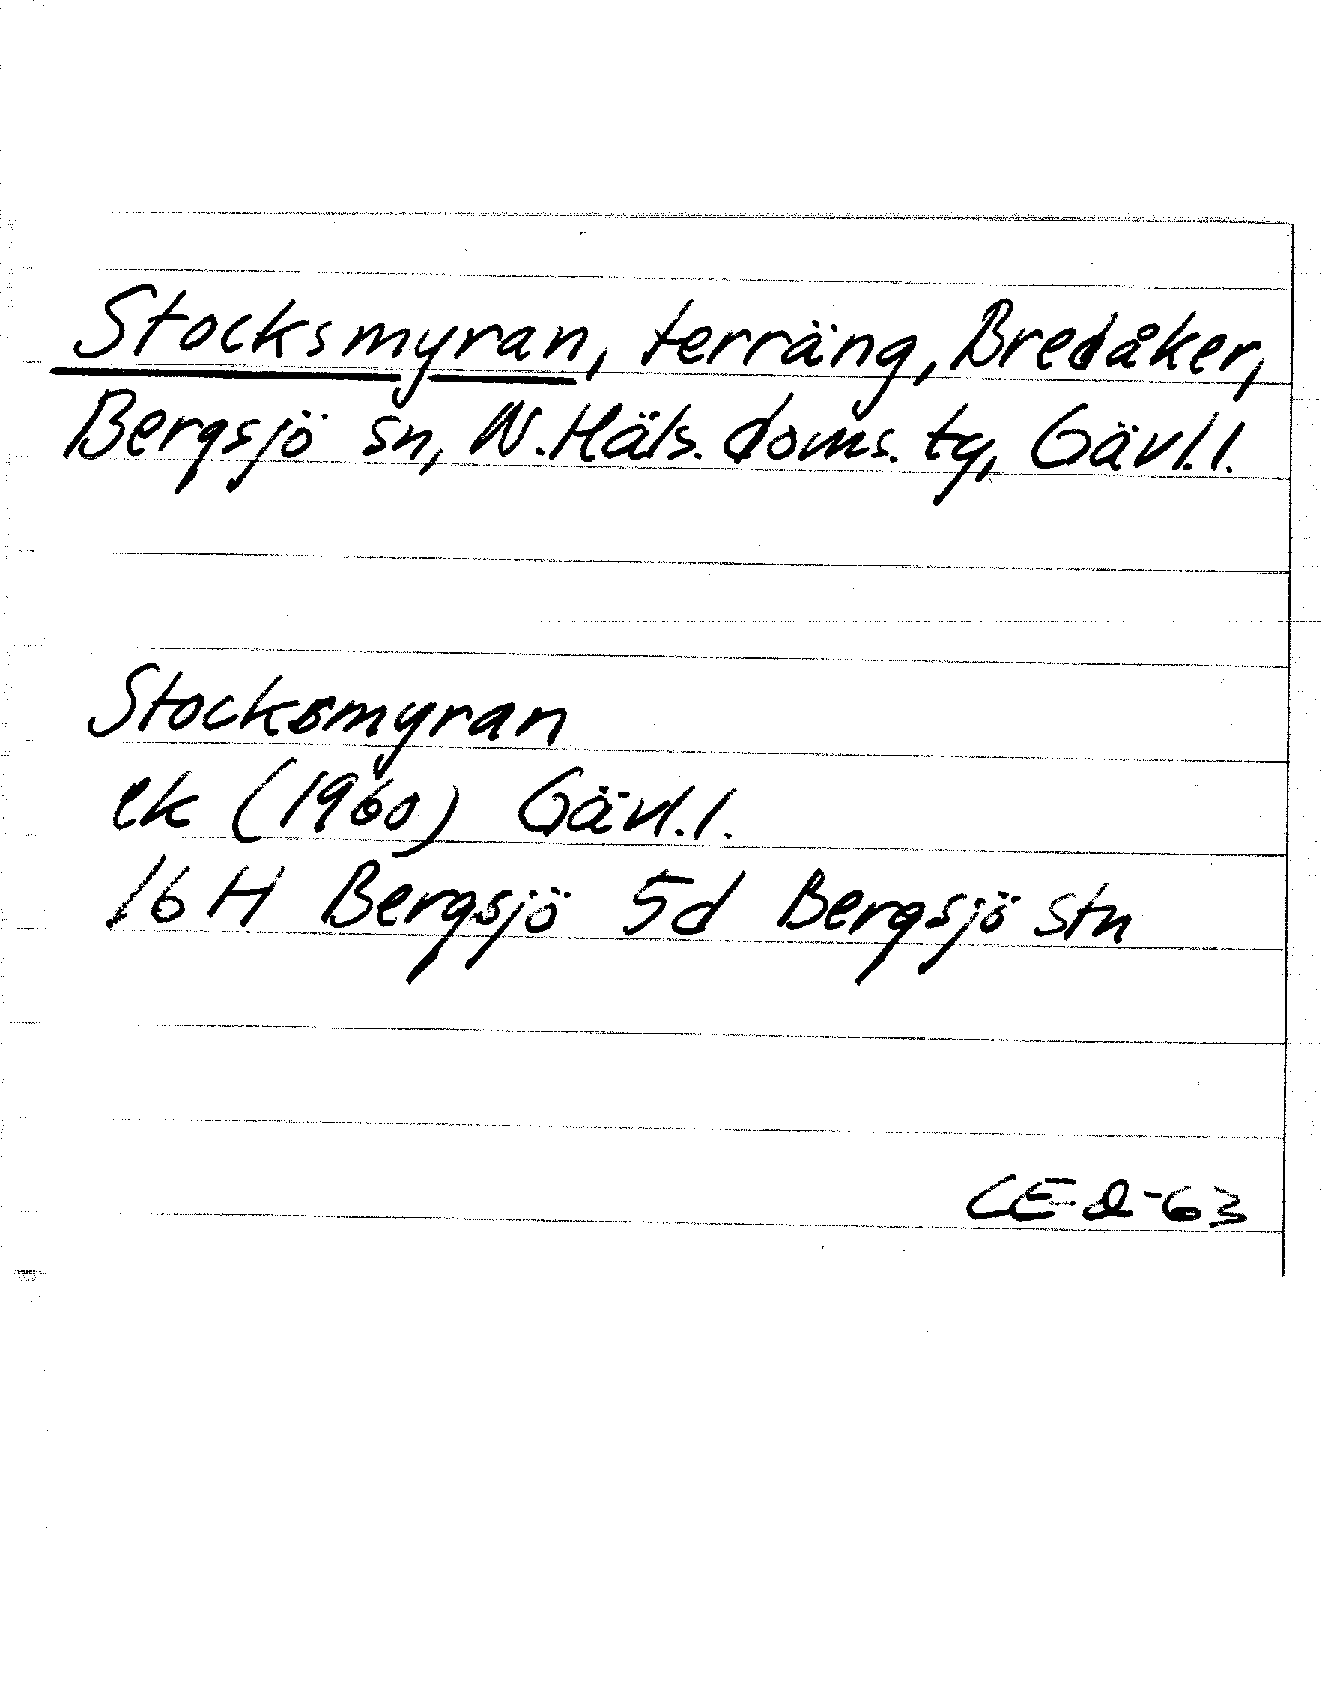 Stocksmyran, terräng, Bredåker,
Bergsjö sn, N.Häls. doms. tg, Gävl.l.
Stocksmyran
ek (1960) Gävl.l.
16H Bergsjö 5d Bergsjö stn
CE-d-63